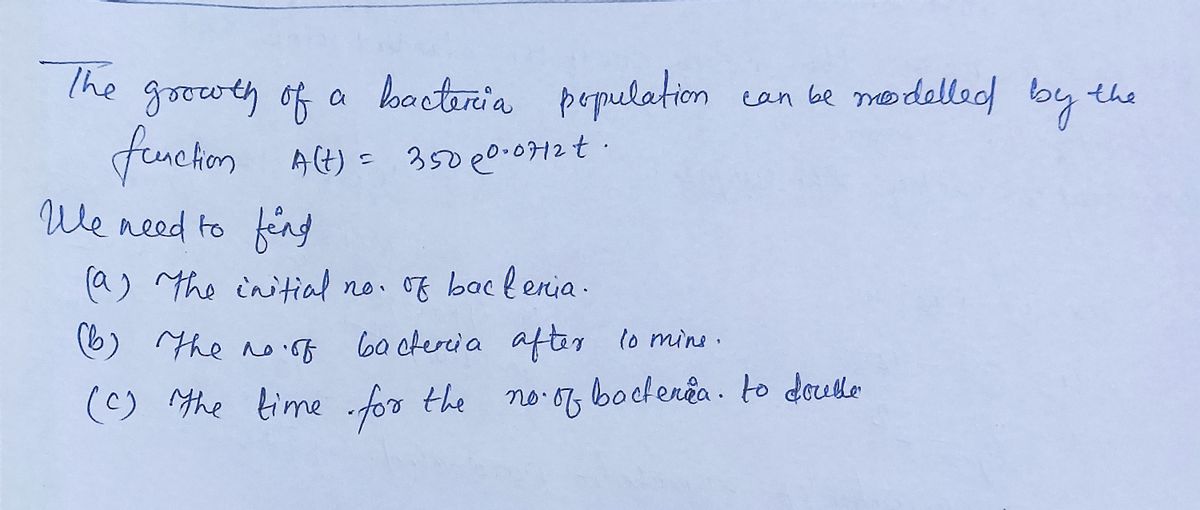 The growth of a bacteria population can be modelled by the
function A(t) = 350 e^0.0712t.
We need to find
(a) The initial no. of bacteria.
(b) The no. of bacteria after 10 mins.
(c) The time for the no. of bacteria. to double